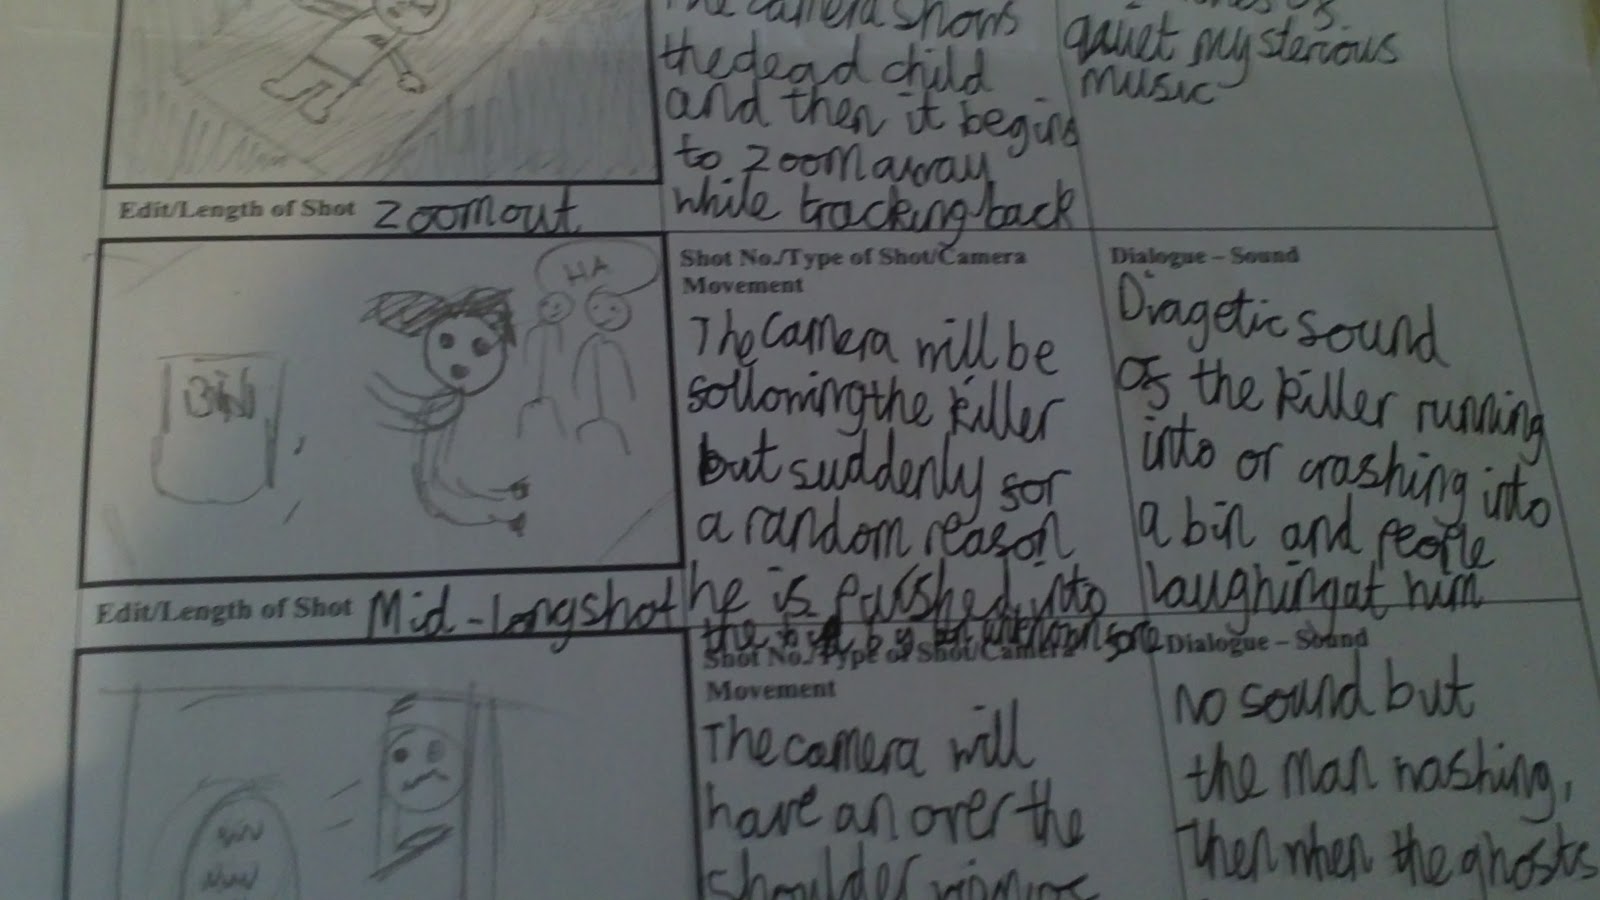 The camera shows
the dead child
and then it begins
to zoom away
while tracking back
quiet mysterious
music
Edit/Length of Shot Zoom out
BIN
HA
Shot No./Type of Shot/Camera
Movement
The camera will be
following the killer
but suddenly for
a random reason
he is pushed into
the by unknown
Dialogue – Sound
Diagetic sound
of the killer running
into or crashing into
a bin and people
laughing at him
Edit/Length of Shot Mid-longshot
Shot No./Type of Shot/Camera
Movement
The camera will
have an over the
shoulder
Dialogue – Sound
No sound but
the man washing,
then when the ghosts